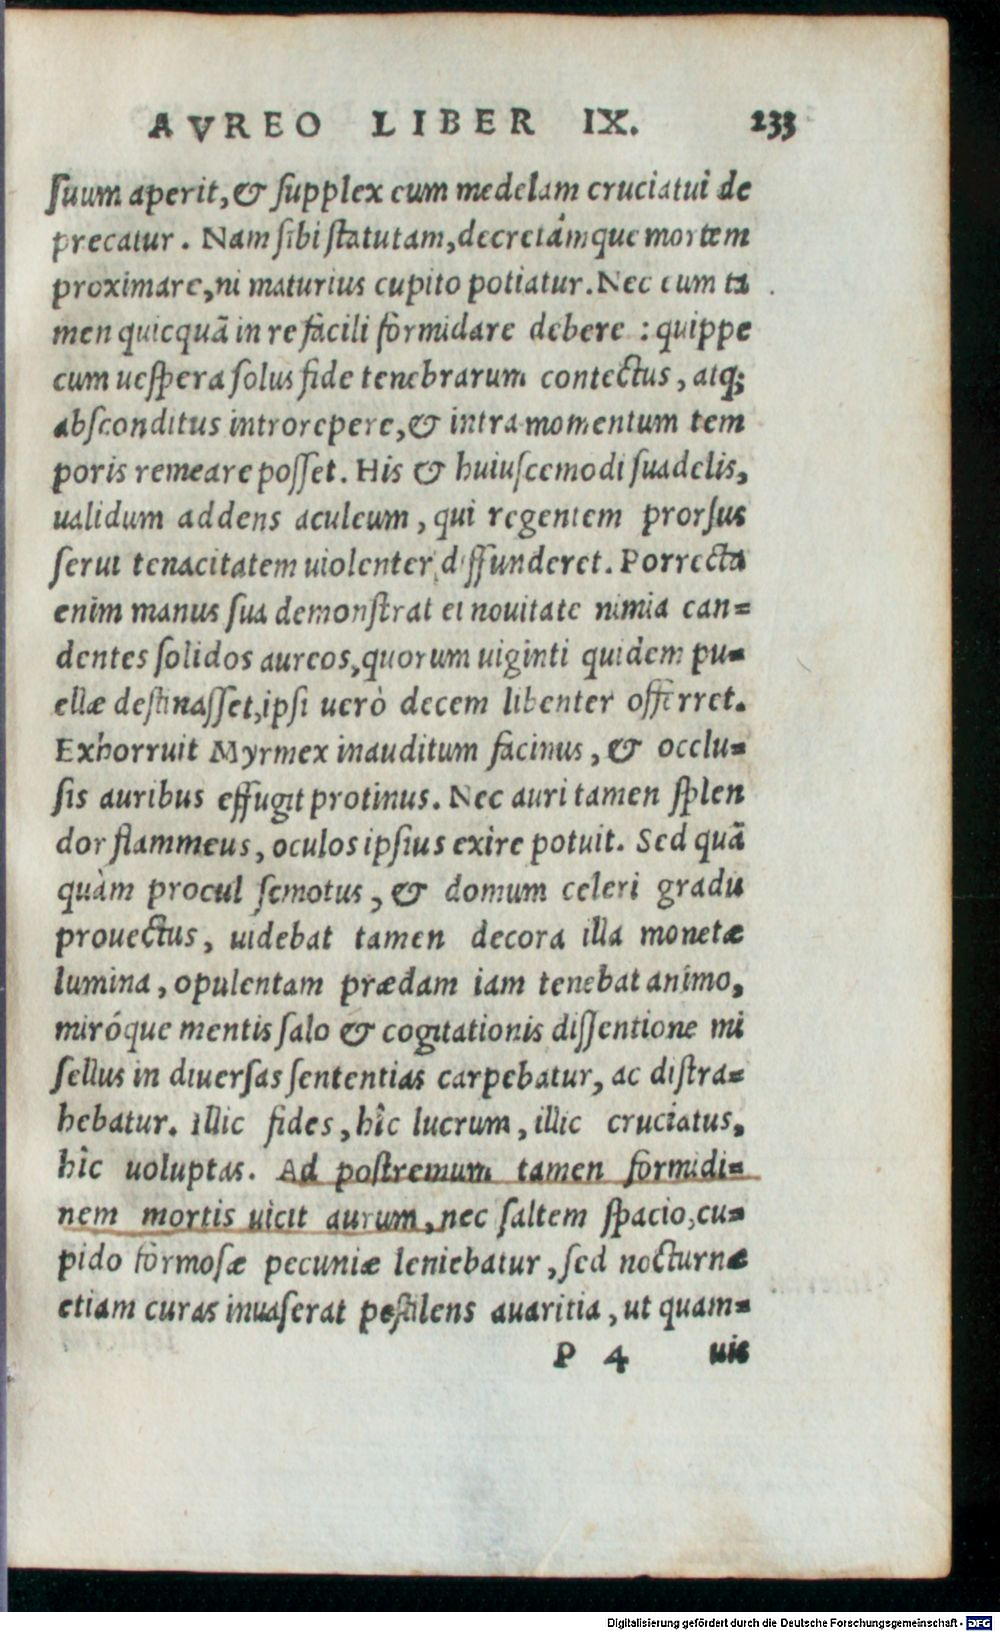 AVREO LIBER IX. 233
ſuum aperit, & ſupplex eum medelam cruciatui de
precatur. Nam ſibi ſtatutam, decretámque mortem
proximare, ni maturius cupito potiatur. Nec eum ta
men quicquã in re facili formidare debere : quippe
cum ueſpera ſolus fide tenebrarum contectus, atq;
abſconditus introrepere, & intra momentum tem
poris remeare poſſet. His & huiuſcemodi ſuadelis,
ualidum addens aculeum, qui regentem prorſus
ſerui tenacitatem uiolenter diffunderet. Porrecta
enim manus ſua demonſtrat ei nouitate nimia can=
dentes ſolidos aureos, quorum uiginti quidem pu=
ellæ deſtinaſſet, ipſi uerò decem libenter offerret.
Exhorruit Myrmex inauditum facinus, & occlu=
ſis auribus effugit protinus. Nec auri tamen ſplen
dor flammeus, oculos ipſius exire potuit. Sed quã
quàm procul ſemotus, & domum celeri gradu
prouectus, uidebat tamen decora illa monetæ
lumina, opulentam prædam iam tenebat animo,
miróque mentis ſalo & cogitationis diſſentione mi
ſellus in diuerſas ſententias carpebatur, ac diſtra=
hebatur. illic fides, hîc lucrum, illic cruciatus,
hîc uoluptas. Ad poſtremum tamen formidi=
nem mortis uicit aurum, nec ſaltem ſpacio, cu=
pido formoſæ pecuniæ leniebatur, ſed nocturnæ
etiam curas inuaſerat peſtilens auaritia, ut quam=
P 4 uis
Digitalisierung gefördert durch die Deutsche Forschungsgemeinschaft - DFG